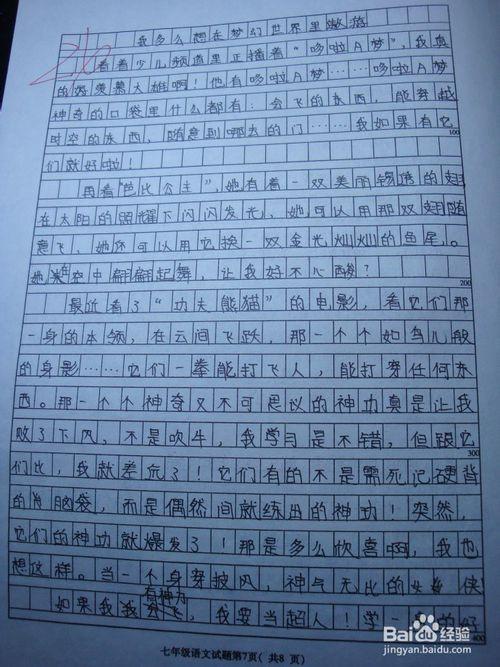 我多么想在梦幻世界里
看着少儿频道里正播着“哆啦A梦”，我真
的好羡慕大雄啊！他有哆啦A梦……哆啦A梦
神奇的口袋里什么都有：会飞的东西，能穿越
时空的东西，随意到哪去的门……我如果有它
们就好啦！
100
再看“芭比公主”，她有着一双美丽的翅
在太阳的照耀下闪闪发光，她可以用那双翅随
意飞，她你可以用它换一双金光灿灿的鱼尾。
她在空中翩翩起舞，让我好不心酸？
200
最近看了“功夫熊猫”的电影，看它们那
一身的本领，在云间飞跃，那一个个如鸟儿般
的身影……它们一拳能打飞人，能打穿任何东
西。那一个个神奇又不可思议的神功真是让我
败了下风，不是吹牛，我学习是不错，但跟它
300
们比，我就差沉了！它们有的不是需死记硬背
的脑袋，而是偶然间就练出的神功！突然，
它们的神功就爆发了！那是多么欣喜啊，我也
想这样。当一个身穿披风，神气无比的女侠
如果我有神力，我要当超人！学一身的好
400
七年级语文试题第7页（共8 页）
Baidu 经验
jingyan.baidu.com